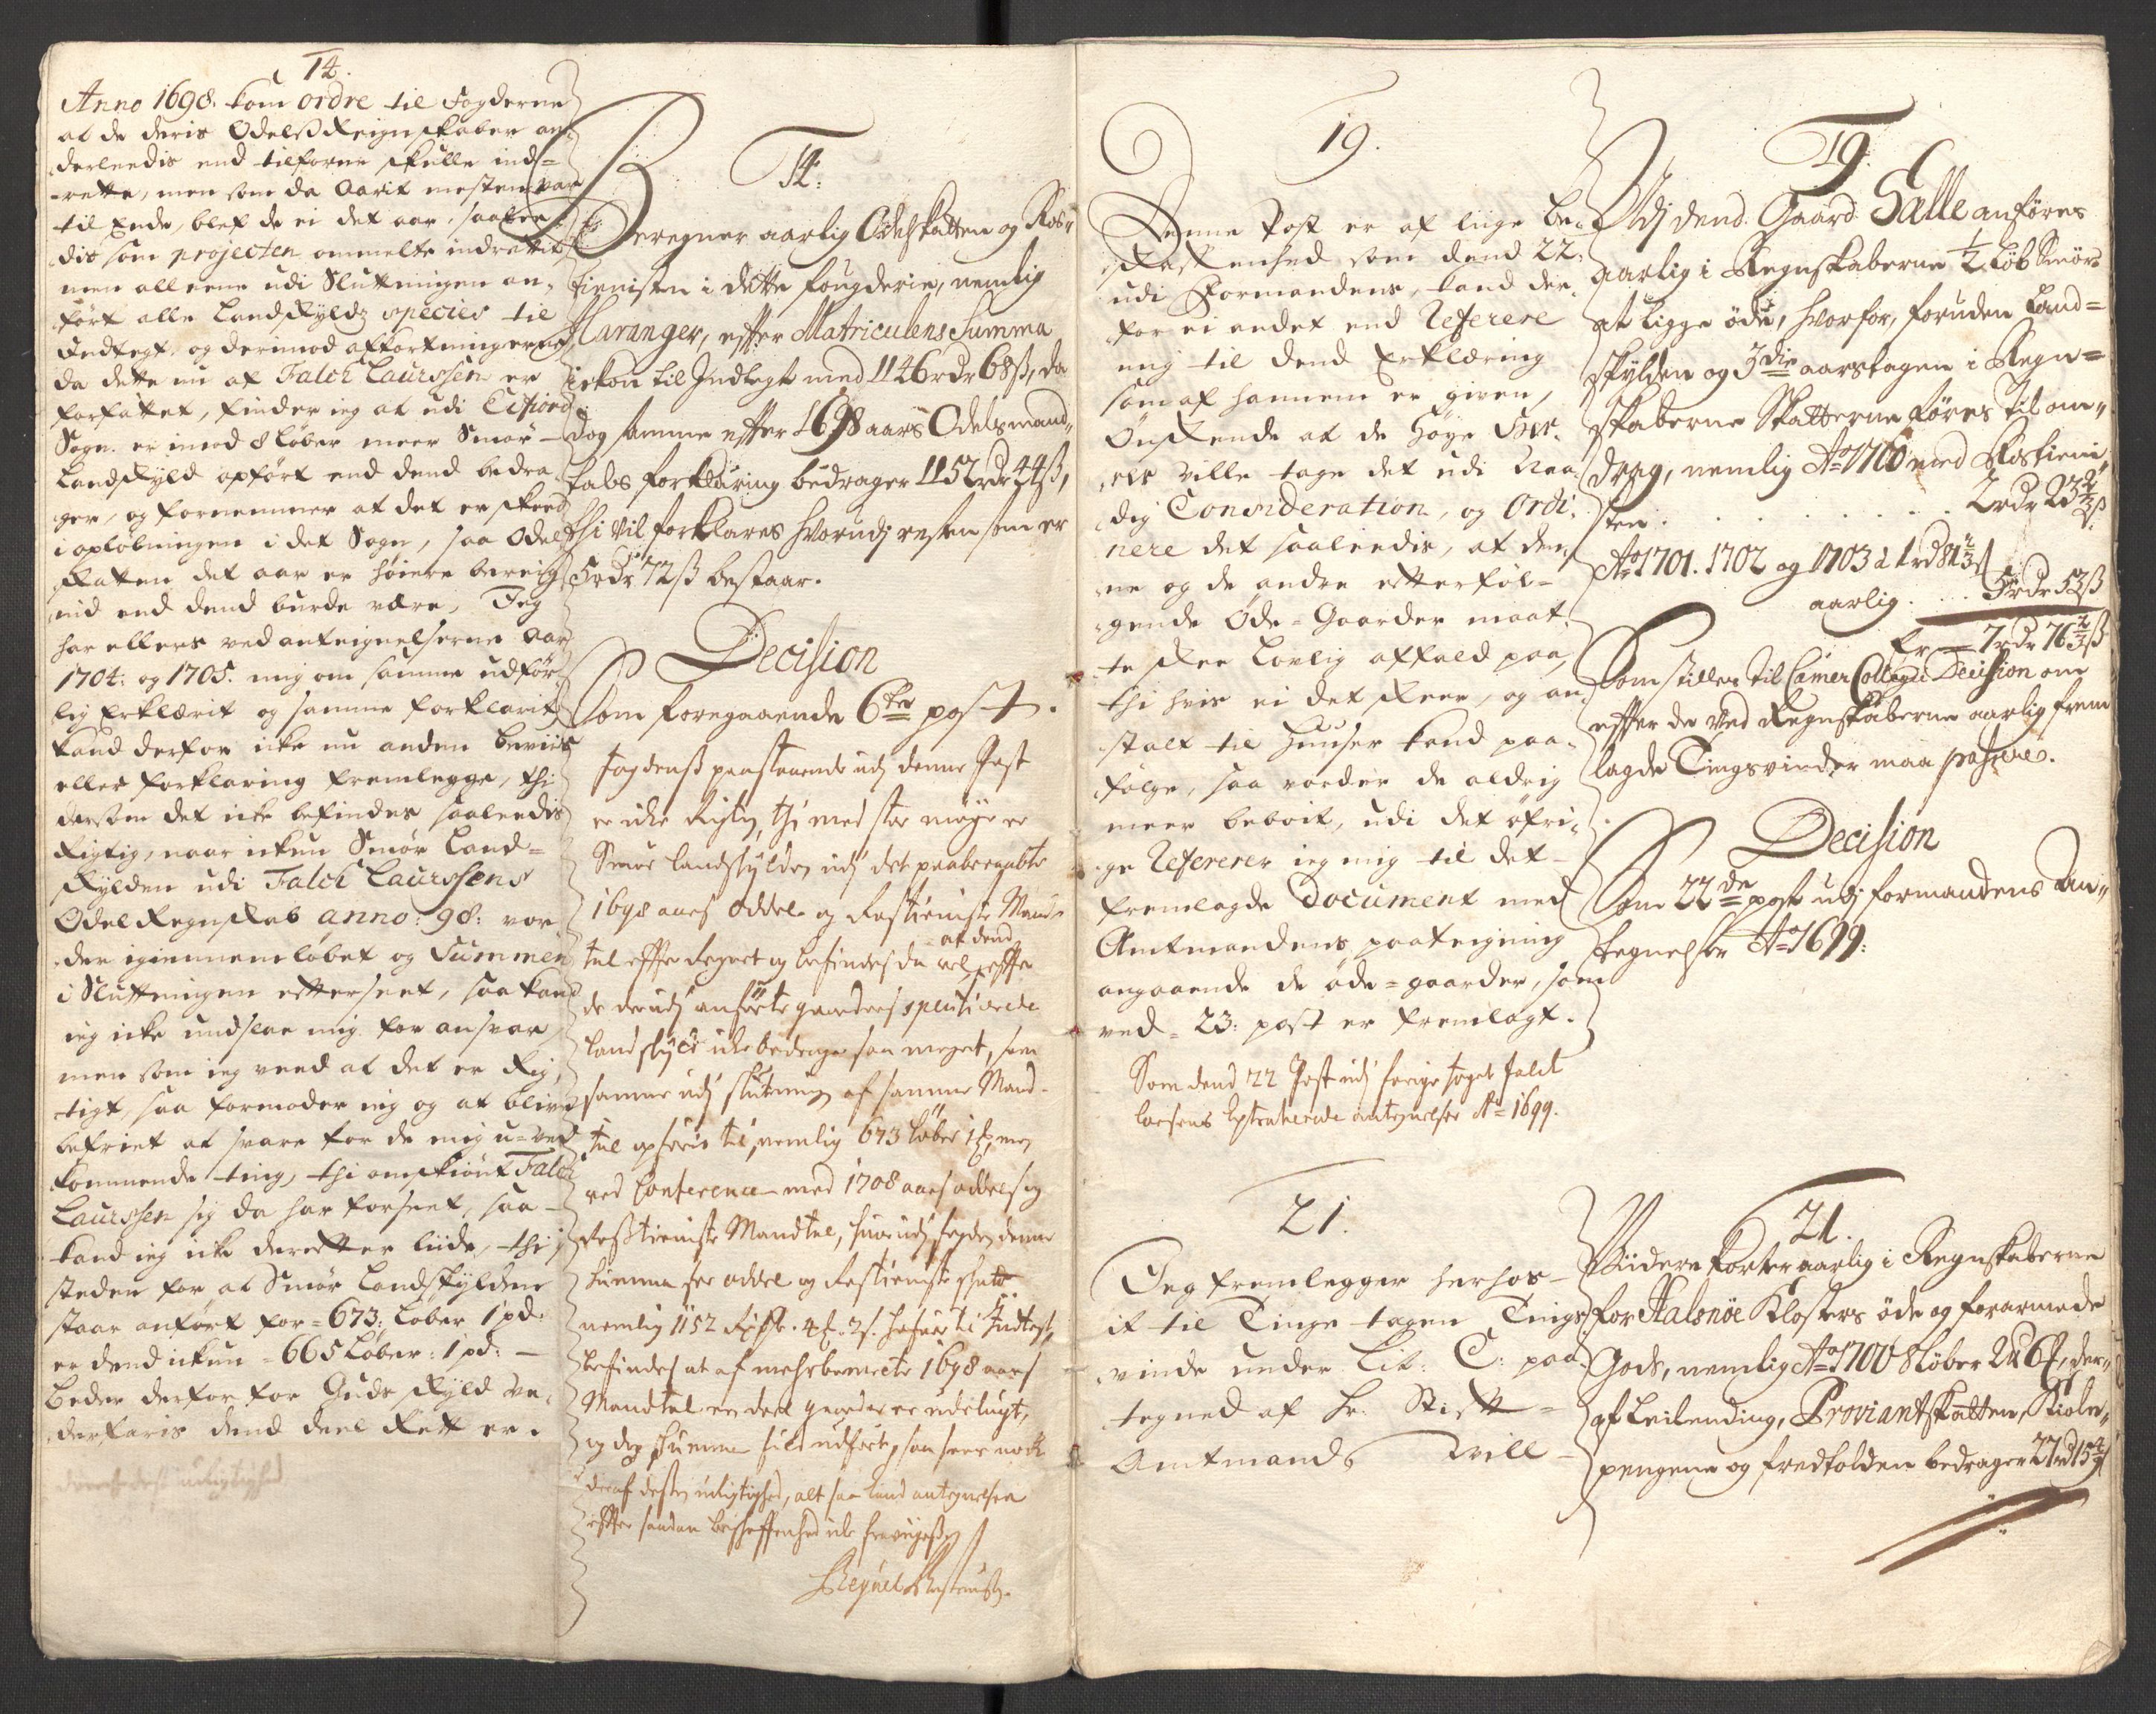 14.
Anno 1698. kom ordre til Fogderne
at de deris Odelsz Reignskaber an,
derleedis end tilforne skulle ind=
rette, men som da Aarit mesten var
til Ende, blef de ei det aar, saalee
dis som projecten ommelte indrettit,
men alleene udi Sluttningen an,
ført alle Landskyldz species til
Indtegt, og derimod afkortningerne,
da dette nu af Falch Laurssen er
forfattet, finder ieg at udi
Sogn er imod 8 Løber meer Smør-
Landskyld opført end dend bedra
ger, og fornemmer at det er skeed
i opløbningen i det Sogn, saa Odel
skatten det aar er høiere bereig
nid end dend burde være, Jeg
har ellers ved anteignelserne Aar
1704: og 1705. mig om samme udfør
lig Erklærit og samme forklarit,
kand derfor icke nu anden beviis
eller forklaring fremlegge, thi
dersom det icke befindes saaleedis
Rigtig, naar ickun Smør Land=
skylden udi Falch Laurssens
Odel Regnskab anno: 98: vor
der igiennemløbet og Summen
i Sluttningen efterseet, saa kand
ieg icke undslaae mig for ansvar,
men som ieg veed at det er Rig,
tigt, saa formoder ieg og at blive
befriet at svare for de mig u=ved
kommende ting, thi omskiønt Falch
Laurssen sig da har forseet, saa
kand ieg icke derefter liide, thi i
steden for at Smør Landskyldene
staar anført for = 673: Løber 1 pd:
er dend ickun = 665 Løber: 1 pd: —
Beder derfor for Guds skyld ve,
derfaris dend deel Rett er.
14:
Beregner aarlig Odelskatten og Ros,
tienisten i dette fougderie, nemlig
Haranger, efter Matriculens Summa
ickon til Indtegt med 1146 rdr 68 ß, da
dog samme efter 1698 aars Odelsmand,
tals forklaring bedrager 1152 rdr 44 ß,
thi vil forklares hvorudj resten som er
5 rdr 72 ß bestaar.
Decision
Som foregaaende 6te post.
Fogdens paastaaende udj denne Post
er icke Rigtig, thi med stor møye er
Smør landskylden udj det paaberaabte
1698 aars oddel og Rostieniste Mand-
tal efter Regnet og befindes da vel at dend efter
de derudj anførte gaarders specificerede
landskyld icke bedrager saa meget, som
samme udj slutning af samme Mand-
tal opføris til, nemlig 673 løber 1 , men
ved Conference med 1708 aars oddels og
Rostieniste Mandtal, hvorudj fogden denne
summa for oddel og Rostieniste skatt
nemlig 1152 . 4 . 2 s. hafver til Indtegt,
befindes at af mehrbemelte 1698 aars
Mandtal een deel gaarder er udelugt,
og dog summa fuld udført, saa sees nock
deraf desten urigtighed, alt saa kand antegnelsen
efter saadan beskaffenhed icke
19.
Denne Post er af liige be,
skaffenhed som dend 22:
udi Formandens, kand der,
for ei andet end Referere
mig til dend Erklæring
som af hannem er given,
Ønskende at de Høye Her,
rer ville tage det udi Naa
dig Consideration, og Ordi,
nere det saaleedis, at den,
ne og de andre efterføl-
gende Øde=Gaarder maat
te skee Lovlig affald paa,
thi hvis ei det skeer, og an
stalt til Huuser kand paa
følge, saa vorder de aldrig
meer beboet, udi det øfri,
ge Refererer ieg mig til det
fremlagde Document med
Amtmandens paategning
angaaende de øde=gaarder, som
ved = 23: post er fremlagt.
Som dend 22 Post udj forige foget Falck
larsens antegnelser Ao 1699.
21.
Jeg fremlegger herhos-
it til Tinge tagen Tings
vinde under Lit: C: paa
tegned af Hr. Stifft=
Amtmand Will-
19.
Udj dend Gaard Sælle anføres
aarlig i Regnskaberne ½ Løb Smør
at ligge øde, hvorfor, foruden Land=
skylden og 3die aarstagen i Regn=
skaberne Skatterne føres til om,,
drag, nemlig Ao 1700 med Rostieni,
sten . . . . . . . . 2 rdr 23⅔ ß
Ao 1701. 1702 og 1703 à 1 rd 81⅔ ß
aarlig . . . 5 rdr 53 ß
Er — 7 rdr 76⅔ ß
Som stilles til Camer Collegii Decision om
efter de ved Regnskaberne aarlig frem
lagde Tingsvinder maa passere.
Decision
Som 22de post udj formandens An,,
tegnelser Ao 1699:
21.
Viidere korter aarlig i Regnskaberne
for Halsnøe Klosters øde og forarmede
Gods, nemlig Ao 1700 8 løber 2 6 , der,,
af Leilending, Proviantskatten,
pengene og fredtolden bedrager 27 rd 15